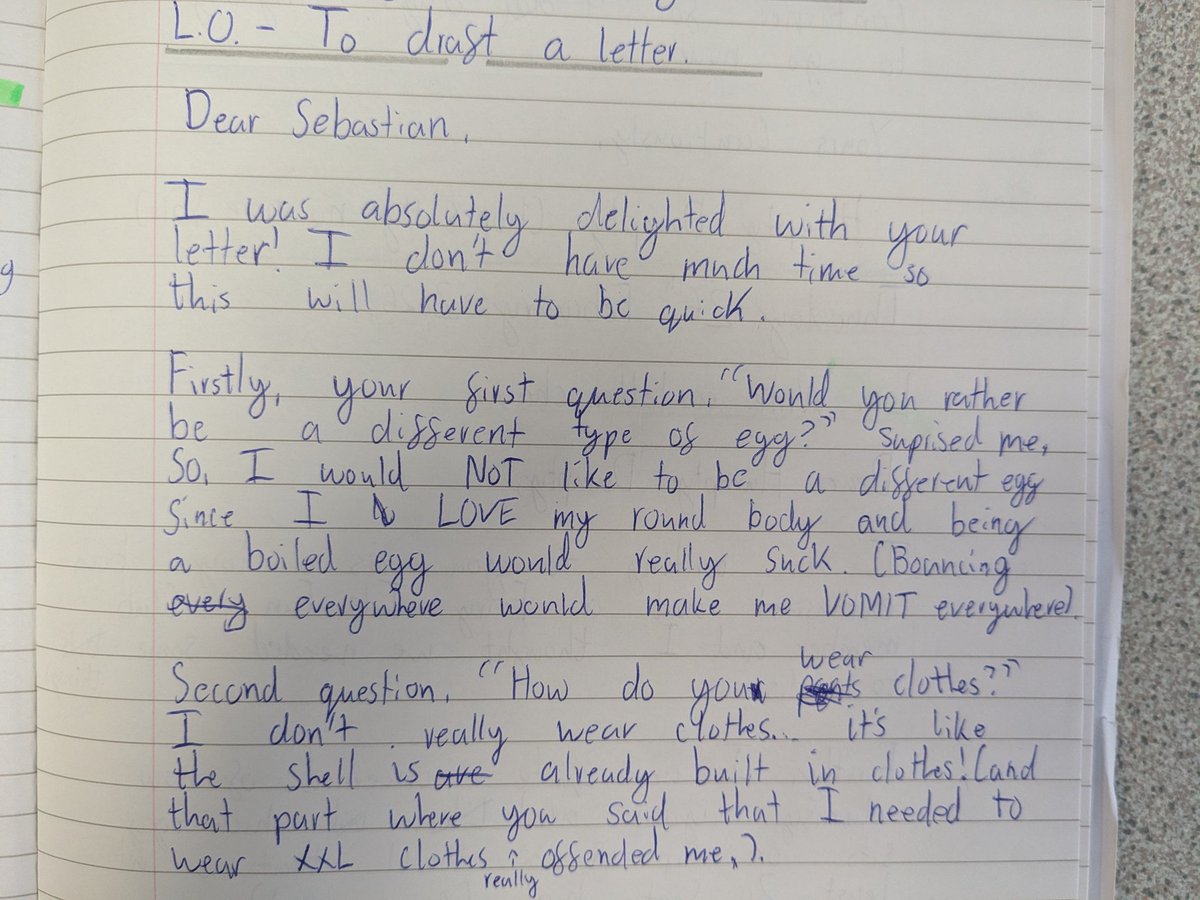 L.O. - To draft a letter.
Dear Sebastian,
I was absolutely delighted with your
letter! I don't have much time so
this will have to be quick.
Firstly, your first question, "Would you rather
be a different type of egg?" Suprised me,
So, I would NOT like to be a different egg
since I LOVE my round body and being
a boiled egg would really suck. (Bouncing
every everywhere would make me VOMIT everywhere).
Second question, "How do you wear clothes?"
I don't really wear clothes... it's like
the shell is are already built in clothes! (and
that part where you said that I needed to
wear XXL clothes really offended me,).